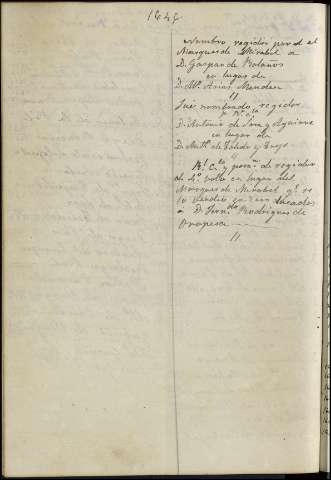 1648
Nombro regidor por el el
Marques de Mirabel a
D. Gaspar de Bolaños
en lugar de
D. Ml. Arias Mender
//
Fué nombrado regidor
D. Antonio de Lara y Aguirre
en lugar de
D. Mutl. de Toledo y Trejo
//
Rl. Co. y de regidor
de 4º voto en lugar del
Marques de Mirabel qe. se
lo vendio en ducados
á D. Ferndo. Rodrigues de
Oropesa
//